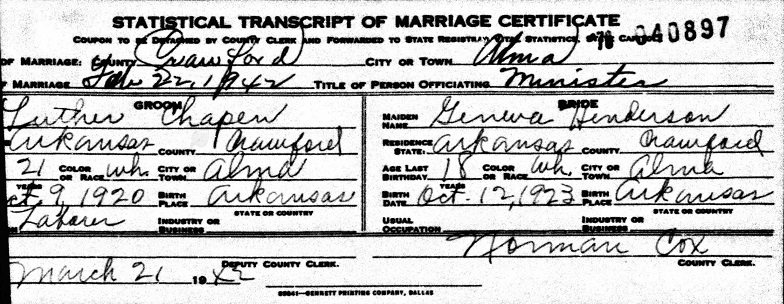 STATISTICAL TRANSCRIPT OF MARRIAGE CERTIFICATE
COUPON TO BE DETACHED BY COUNTY CLERK AND FORWARDED TO STATE REGISTRAR VITAL STATISTICS, 040897
OF MARRIAGE: COUNTY Crawford CITY OR TOWN Alma
MARRIAGE Feb 22, 1942 TITLE OF PERSON OFFICIATING Minister
GROOM BRIDE
Luther Chapen MAIDEN NAME Geneva Henderson
Arkansas COUNTY Crawford RESIDENCE STATE: Arkansas COUNTY Crawford
21 COLOR OR RACE Wh. CITY OR TOWN Alma AGE LAST BIRTHDAY 18 YEARS COLOR OR RACE Wh. CITY OR TOWN Alma
YEARS
Oct 9, 1920 BIRTH PLACE Arkansas BIRTH DATE Oct-12, 1923 BIRTH PLACE Arkansas
STATE OR COUNTRY STATE OR COUNTRY
Laborer INDUSTRY OR BUSINESS USUAL OCCUPATION INDUSTRY OR BUSINESS
Norman Cox
DEPUTY COUNTY CLERK. COUNTY CLERK.
March 21 1942
BENNETT PRINTING COMPANY, DALLAS